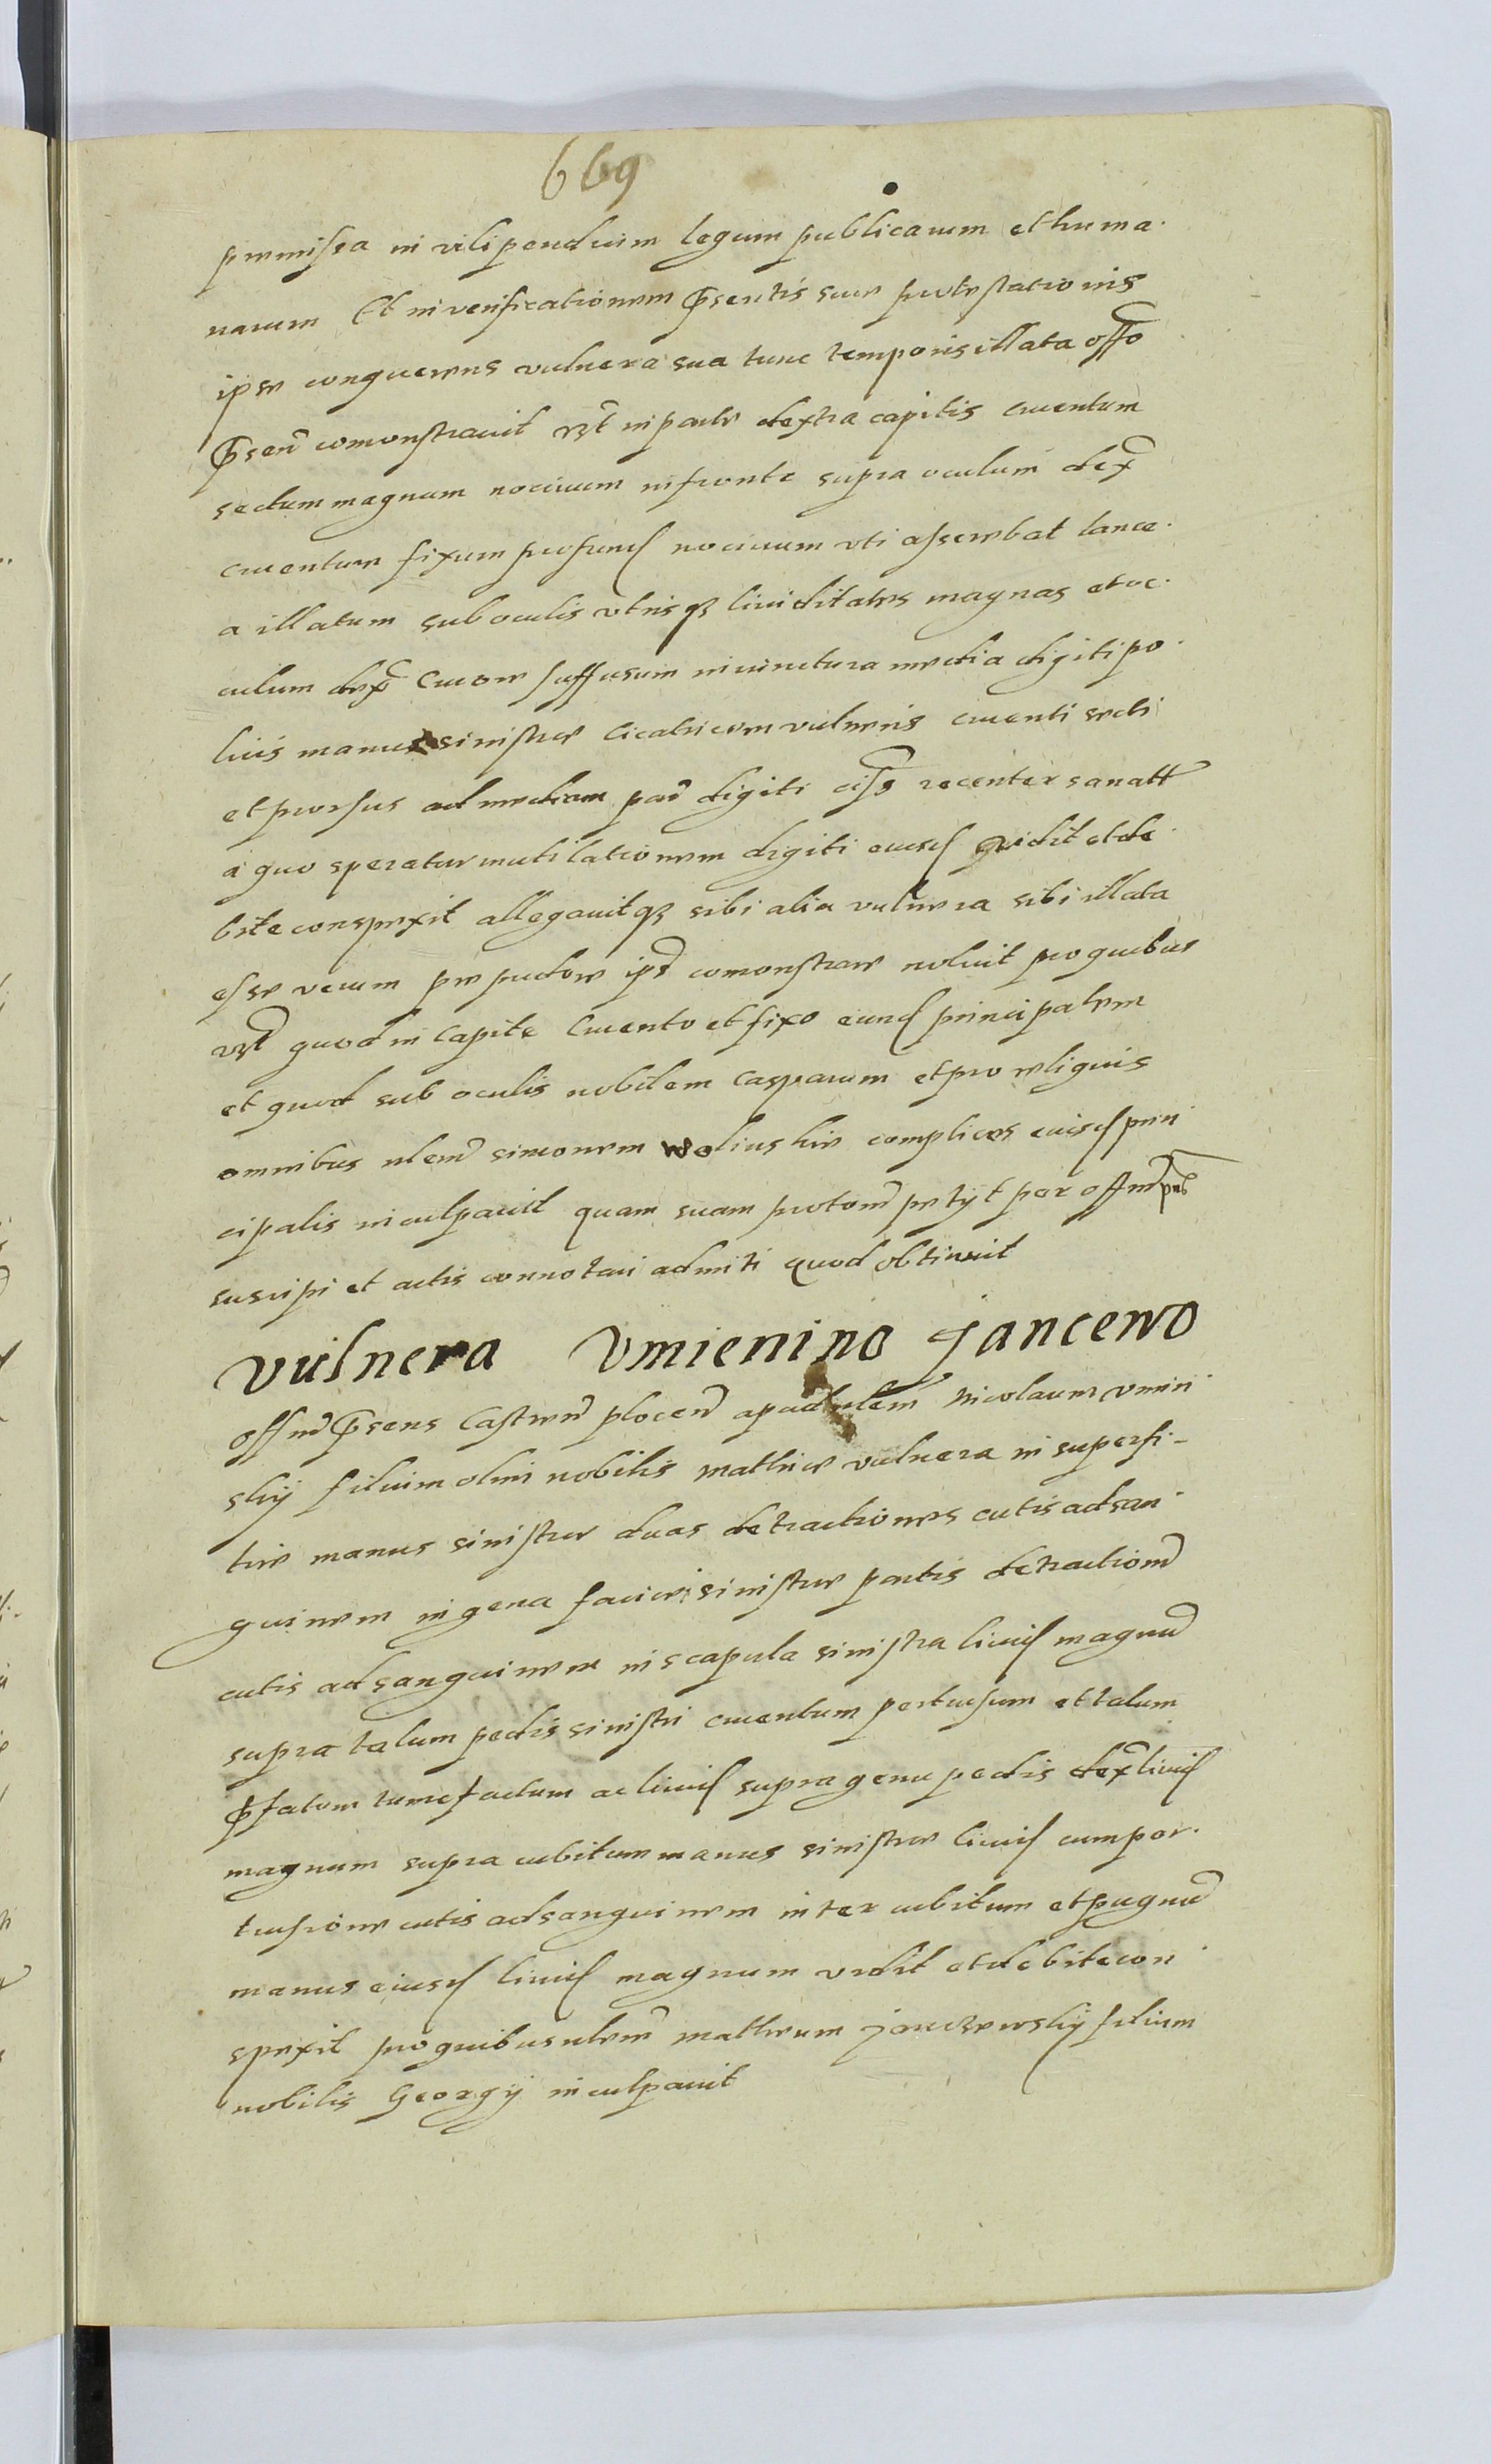 669
premissa in vilipendium legum publicarum et huma-
narum Et in verificationem psentis sue protestationis
ipse conquerens vulnera sua tunc temporis illata offo
psen comonstravit vzt in parte dextra capitis cruentum
sectum magnum nocivum in fronte supra oculum dex
cruentum fixum profund nocivum uti asserebat lance-
a illatum sub oculis utrisqz lividitates magnas et oc-
culum dex cruore suffusum in iunctura media digiti po-
licis manus sinistre cicatricem vulneris cruenti secti
et prorsus ad mediam par digiti ciss recenter sanatt
a quo speratur mutilationem digiti eiusd vidit et de-
bite conspexit allegavitqz sibi alia vulnera sibi illata
esse verum pre pudore ips comonstrare noluit pro quibus
vzt quod in capite cruento et fixo eund principalem
et quod sub oculis nobilem Casparum et pro reliquis
omnibus nlem Simonem Wolinskie complices eiusd prin-
cipalis inculpavit quam suam protom petyt per offm pns
suscipi et actis connotari admiti quod obtinuit
Vulnera Umienino Jancewo
Offm psens Castren plocen apud nlem Nicolaum Umin-
skij filium olim nobilis Mathie vulnera in superfi-
tie manus sinistre duas detractiones cutis ad san-
guinem in gena faciei sinistre partis detractionem
cutis ad sanguinem in scapula sinistra livid magnu
supra talum pedis sinistri cruentum pertusum et talum
pfatum tumefactum ac livid supra genu pedis dex livid
magnum supra cubitum manus sinistre livid cum per-
tusione cutis ad sanguinem inter cubitum et pugnu
manus eiusd livid magnum vidit et debite con-
spexit pro quibus nlem Matheum Janczewskij filium
nobilis Georgij inculpavit